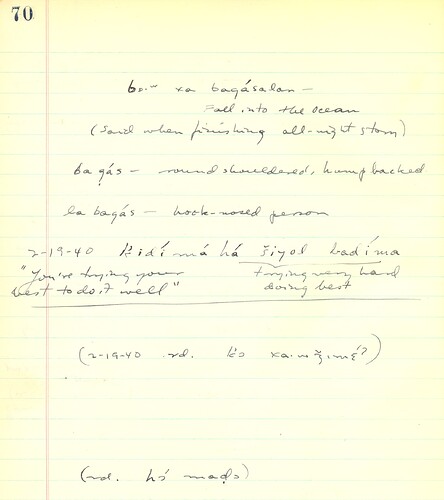 70
xa bagásalan —
Fall into the ocean
(Said when finishing all-night story)
bagás — round shouldered, humpbacked
la bagás — hook-nosed person
2-19-40 k̓idí má há šiyol badíma
"You're trying your trying very hard
best to do it well" doing best
(2-19-40 rd.
(rd.